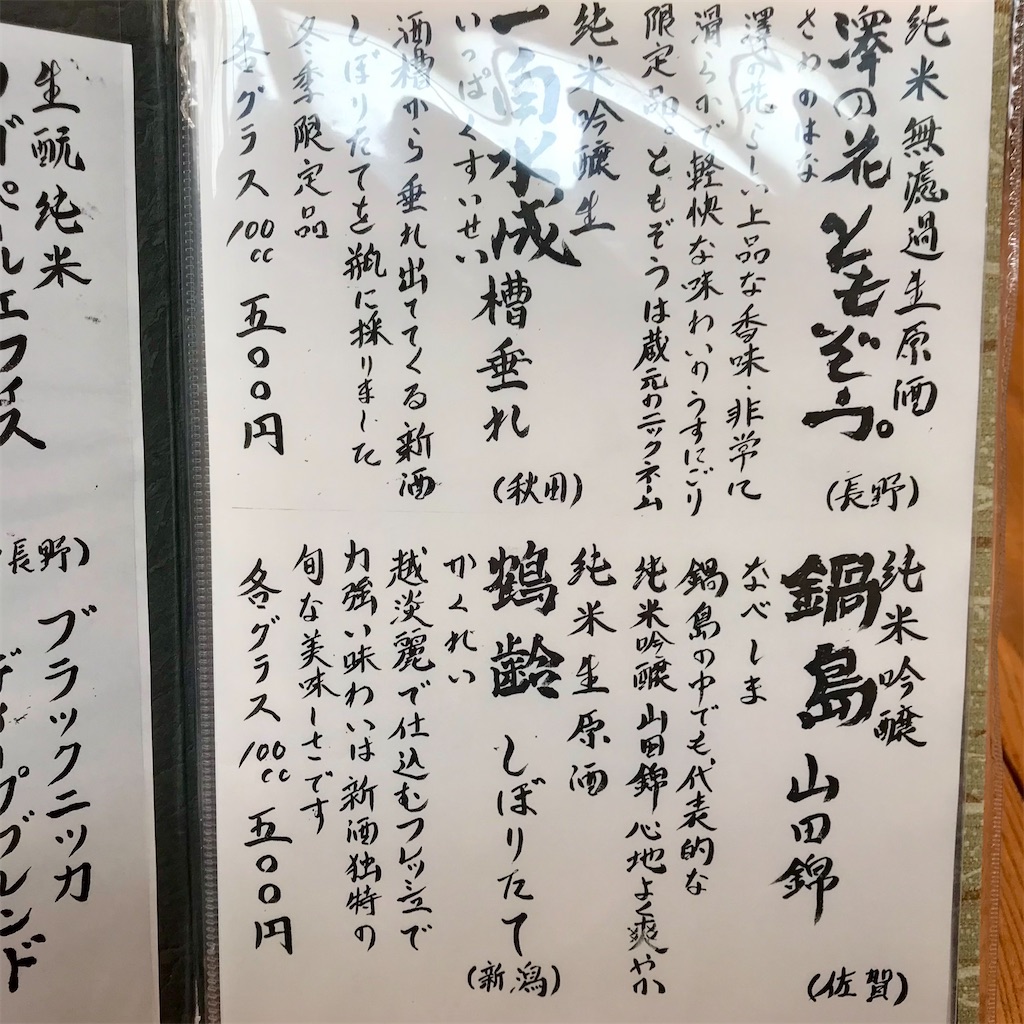 純米無濾過生原酒
澤の花 ともぞう。
さわのはな
(長野)
澤の花らしい上品な香味・非常に
滑らかで軽快な味わいのうすにごり
限定品。ともぞうは蔵元のニックネーム
純米吟醸生
一白水成 槽垂れ
いっぱくすいせい
(秋田)
酒槽から垂れ出てくる新酒
しぼりたてを瓶に採りました
冬季限定品
各グラス100cc 五〇〇円
純米吟醸
鍋島 山田錦
なべしま
(佐賀)
鍋島の中でも代表的な
純米吟醸 山田錦 心地よく爽やか
純米生原酒
鶴齢 しぼりたて
かくれい
(新潟)
越淡麗で仕込むフレッシュで
力強い味わいは新酒独特の
旬な美味しさです
各グラス100cc 五〇〇円
生酛純米
(長野)
ブラックニッカ
ディープブレンド